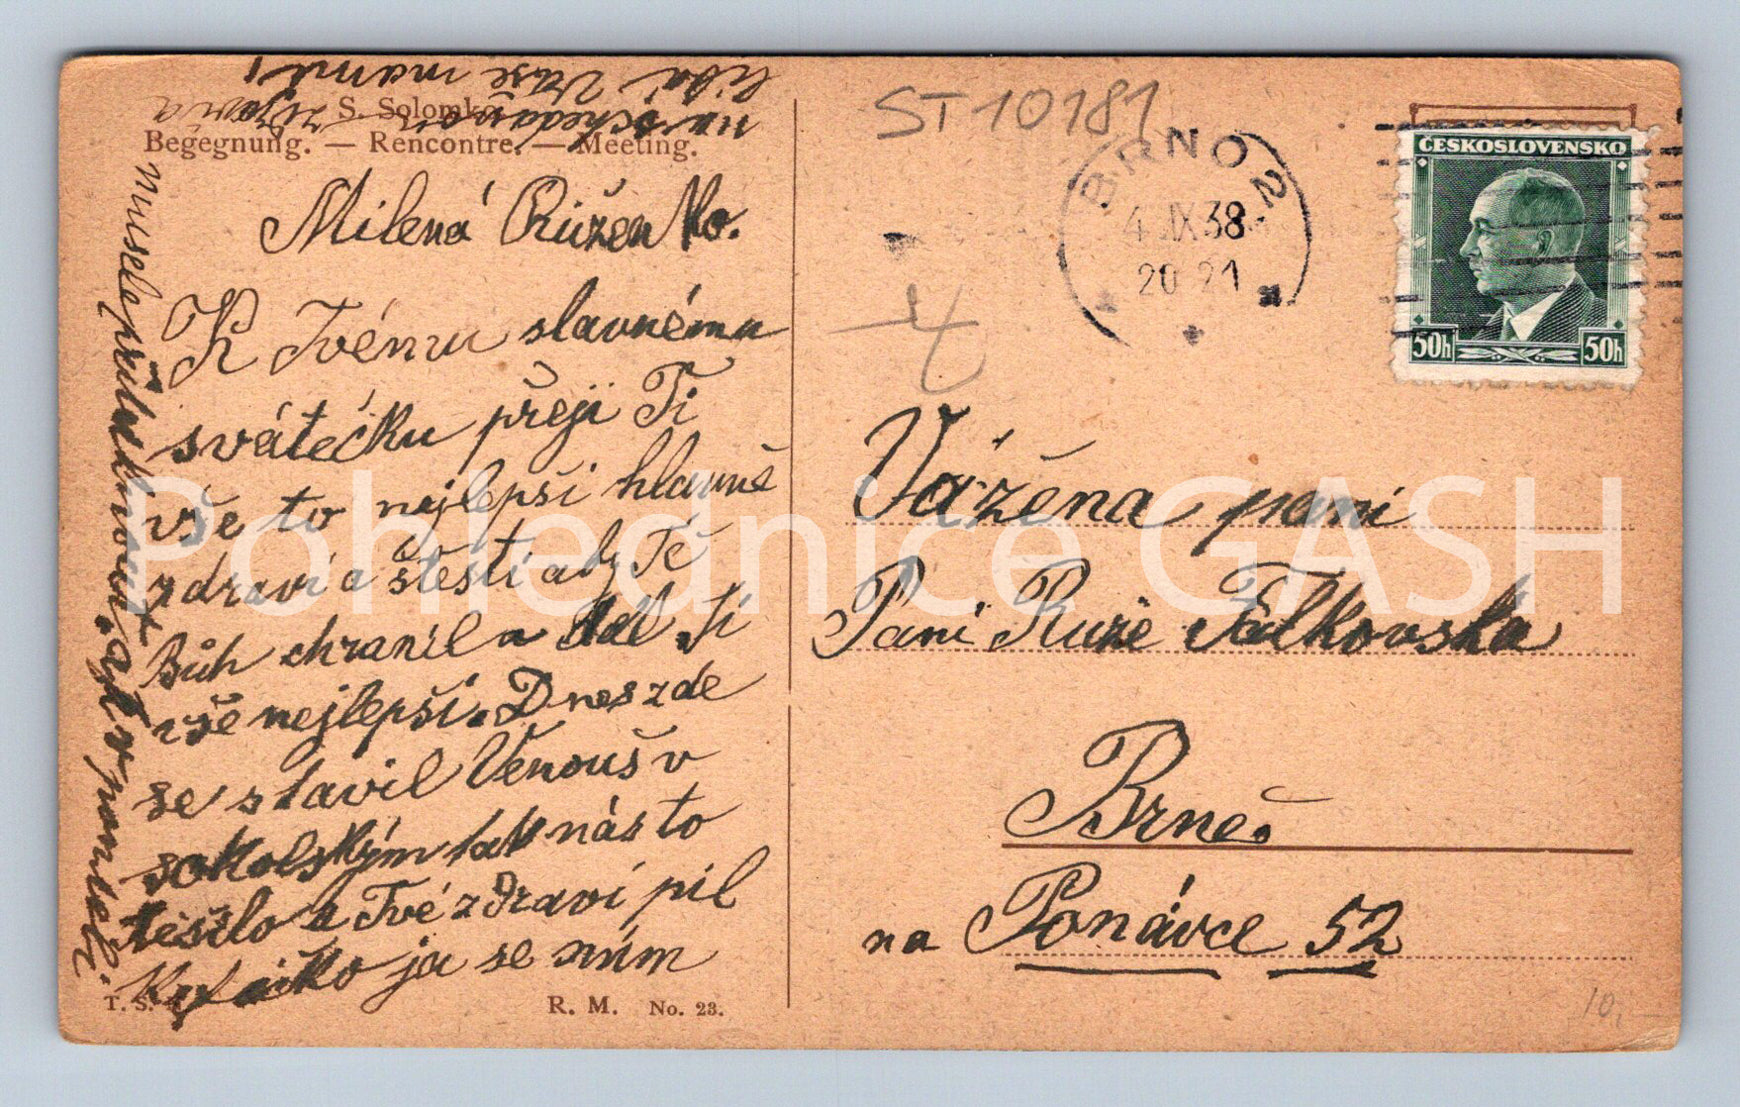 S. Solomko
Begegnung. — Rencontre. — Meeting.
Milená Růžen Ko.
K Tvému slavnému
svátečku přeji Ti
vše to nejlepší hlavně
zdraví a štěstí aby Tě
Bůh chranil a dál Ti
vše nejlepší. Dnes zde
se stavil Venouš v
sokolským tak nás to
těšilo a Tvé zdraví pil
ja se mům
na
Vaše mamí
T. S.
R. M. No. 23.
ST 10181
BRNO 2
4.IX.38
20 21
ČESKOSLOVENSKO
50h 50h
Vážena paní
Paní Ruže Falkovska
Brně.
na Ponávce 52
10,-
Pohlednice GASH